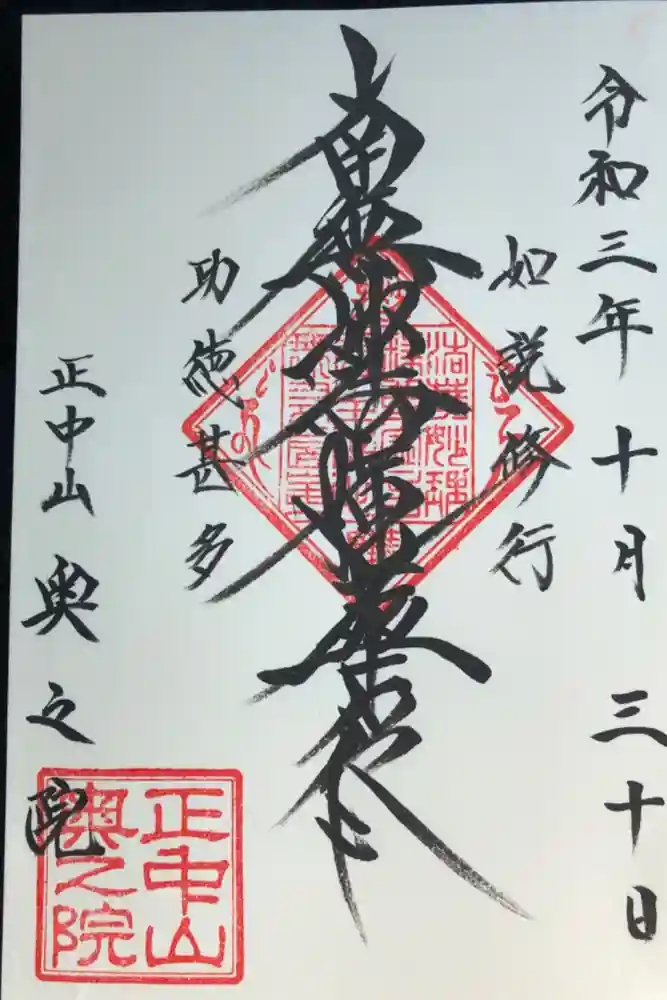 令和三年十月三十日
如説修行
南無妙法蓮華経
功徳甚多
正中山奥之院
正中山
奥之院